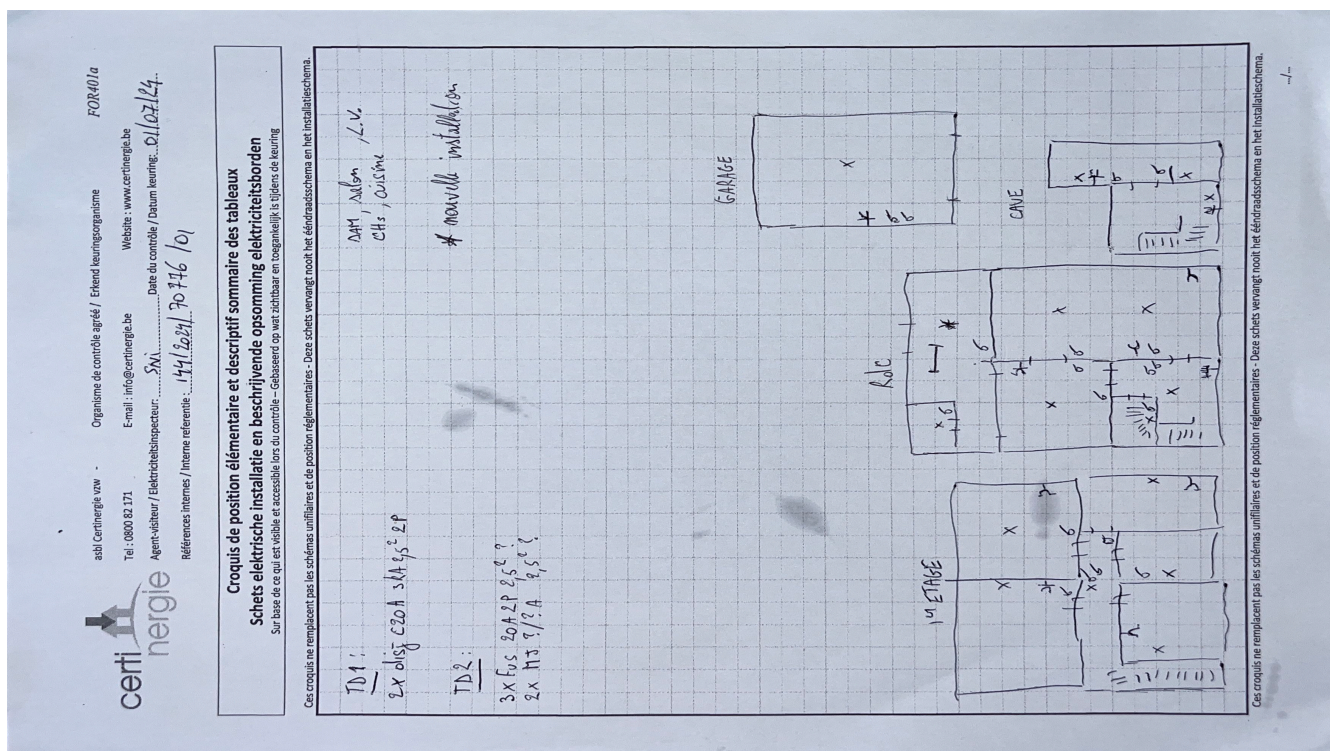 certinergie
asbl Certinergie vzw - Organisme de contrôle agréé / Erkend keuringsorganisme FOR401a
Tel : 0800 82 171 E-mail : info@certinergie.be Website : www.certinergie.be
Agent-visiteur / Elektriciteitsinspecteur: SNi Date du contrôle / Datum keuring: 01/07/24
Références internes / Interne referentie : 144/2024/70776/01
Croquis de position élémentaire et descriptif sommaire des tableaux
Schets elektrische installatie en beschrijvende opsomming elektriciteitsborden
Sur base de ce qui est visible et accessible lors du contrôle – Gebaseerd op wat zichtbaar en toegankelijk is tijdens de keuring
Ces croquis ne remplacent pas les schémas unifilaires et de position réglementaires - Deze schets vervangt nooit het ééndraadsschema en het installatieschema.
TD1 :
2x disj C20A 3kA 2,5² 2P
SAM, salon, L.V.
CHs, cuisine
TD2 :
* nouvelle installation
3x Fus 20A 2P 2,5² ?
2x MJ ?/? A 2,5² ?
GARAGE
1er ETAGE
RdC
CAVE
Ces croquis ne remplacent pas les schémas unifilaires et de position réglementaires - Deze schets vervangt nooit het ééndraadsschema en het installatieschema.
--/--